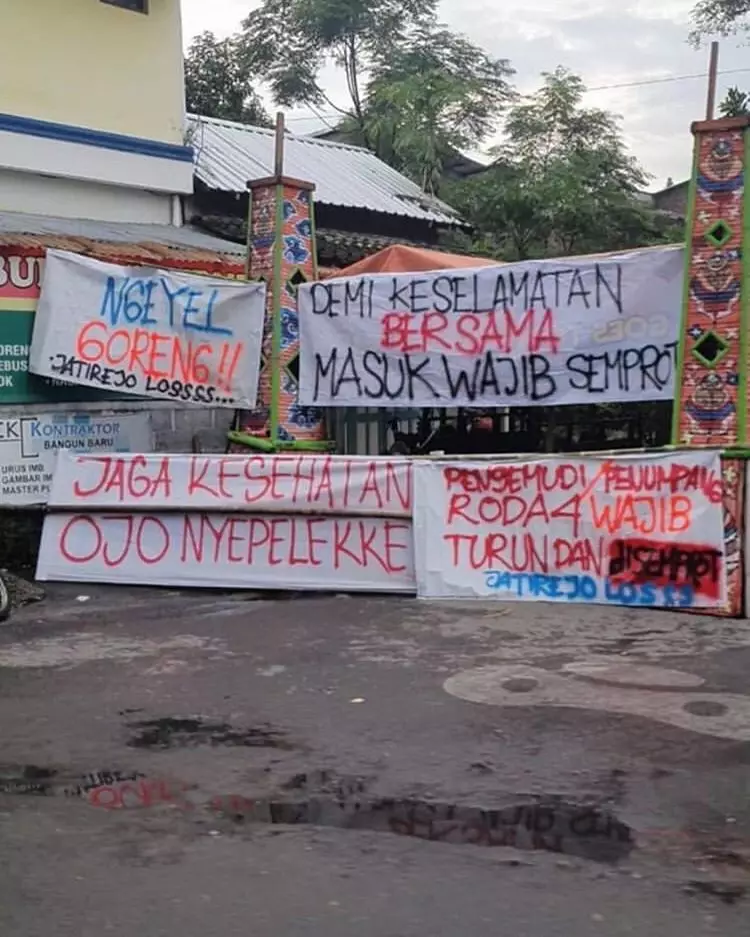 NGEYEL
GORENG!!
JATIREJO LOSSSS...
DEMI KESELAMATAN
BERSAMA
MASUK WAJIB SEMPROT
KONTRAKTOR
BANGUN BARU
URUS IMB
GAMBAR IM
MASTER PL
JAGA KESEHATAN
OJO NYEPELEKKE
PENGEMUDI/PENUMPANG
RODA 4 WAJIB
TURUN DAN DISEMPROT
JATIREJO LOSSS